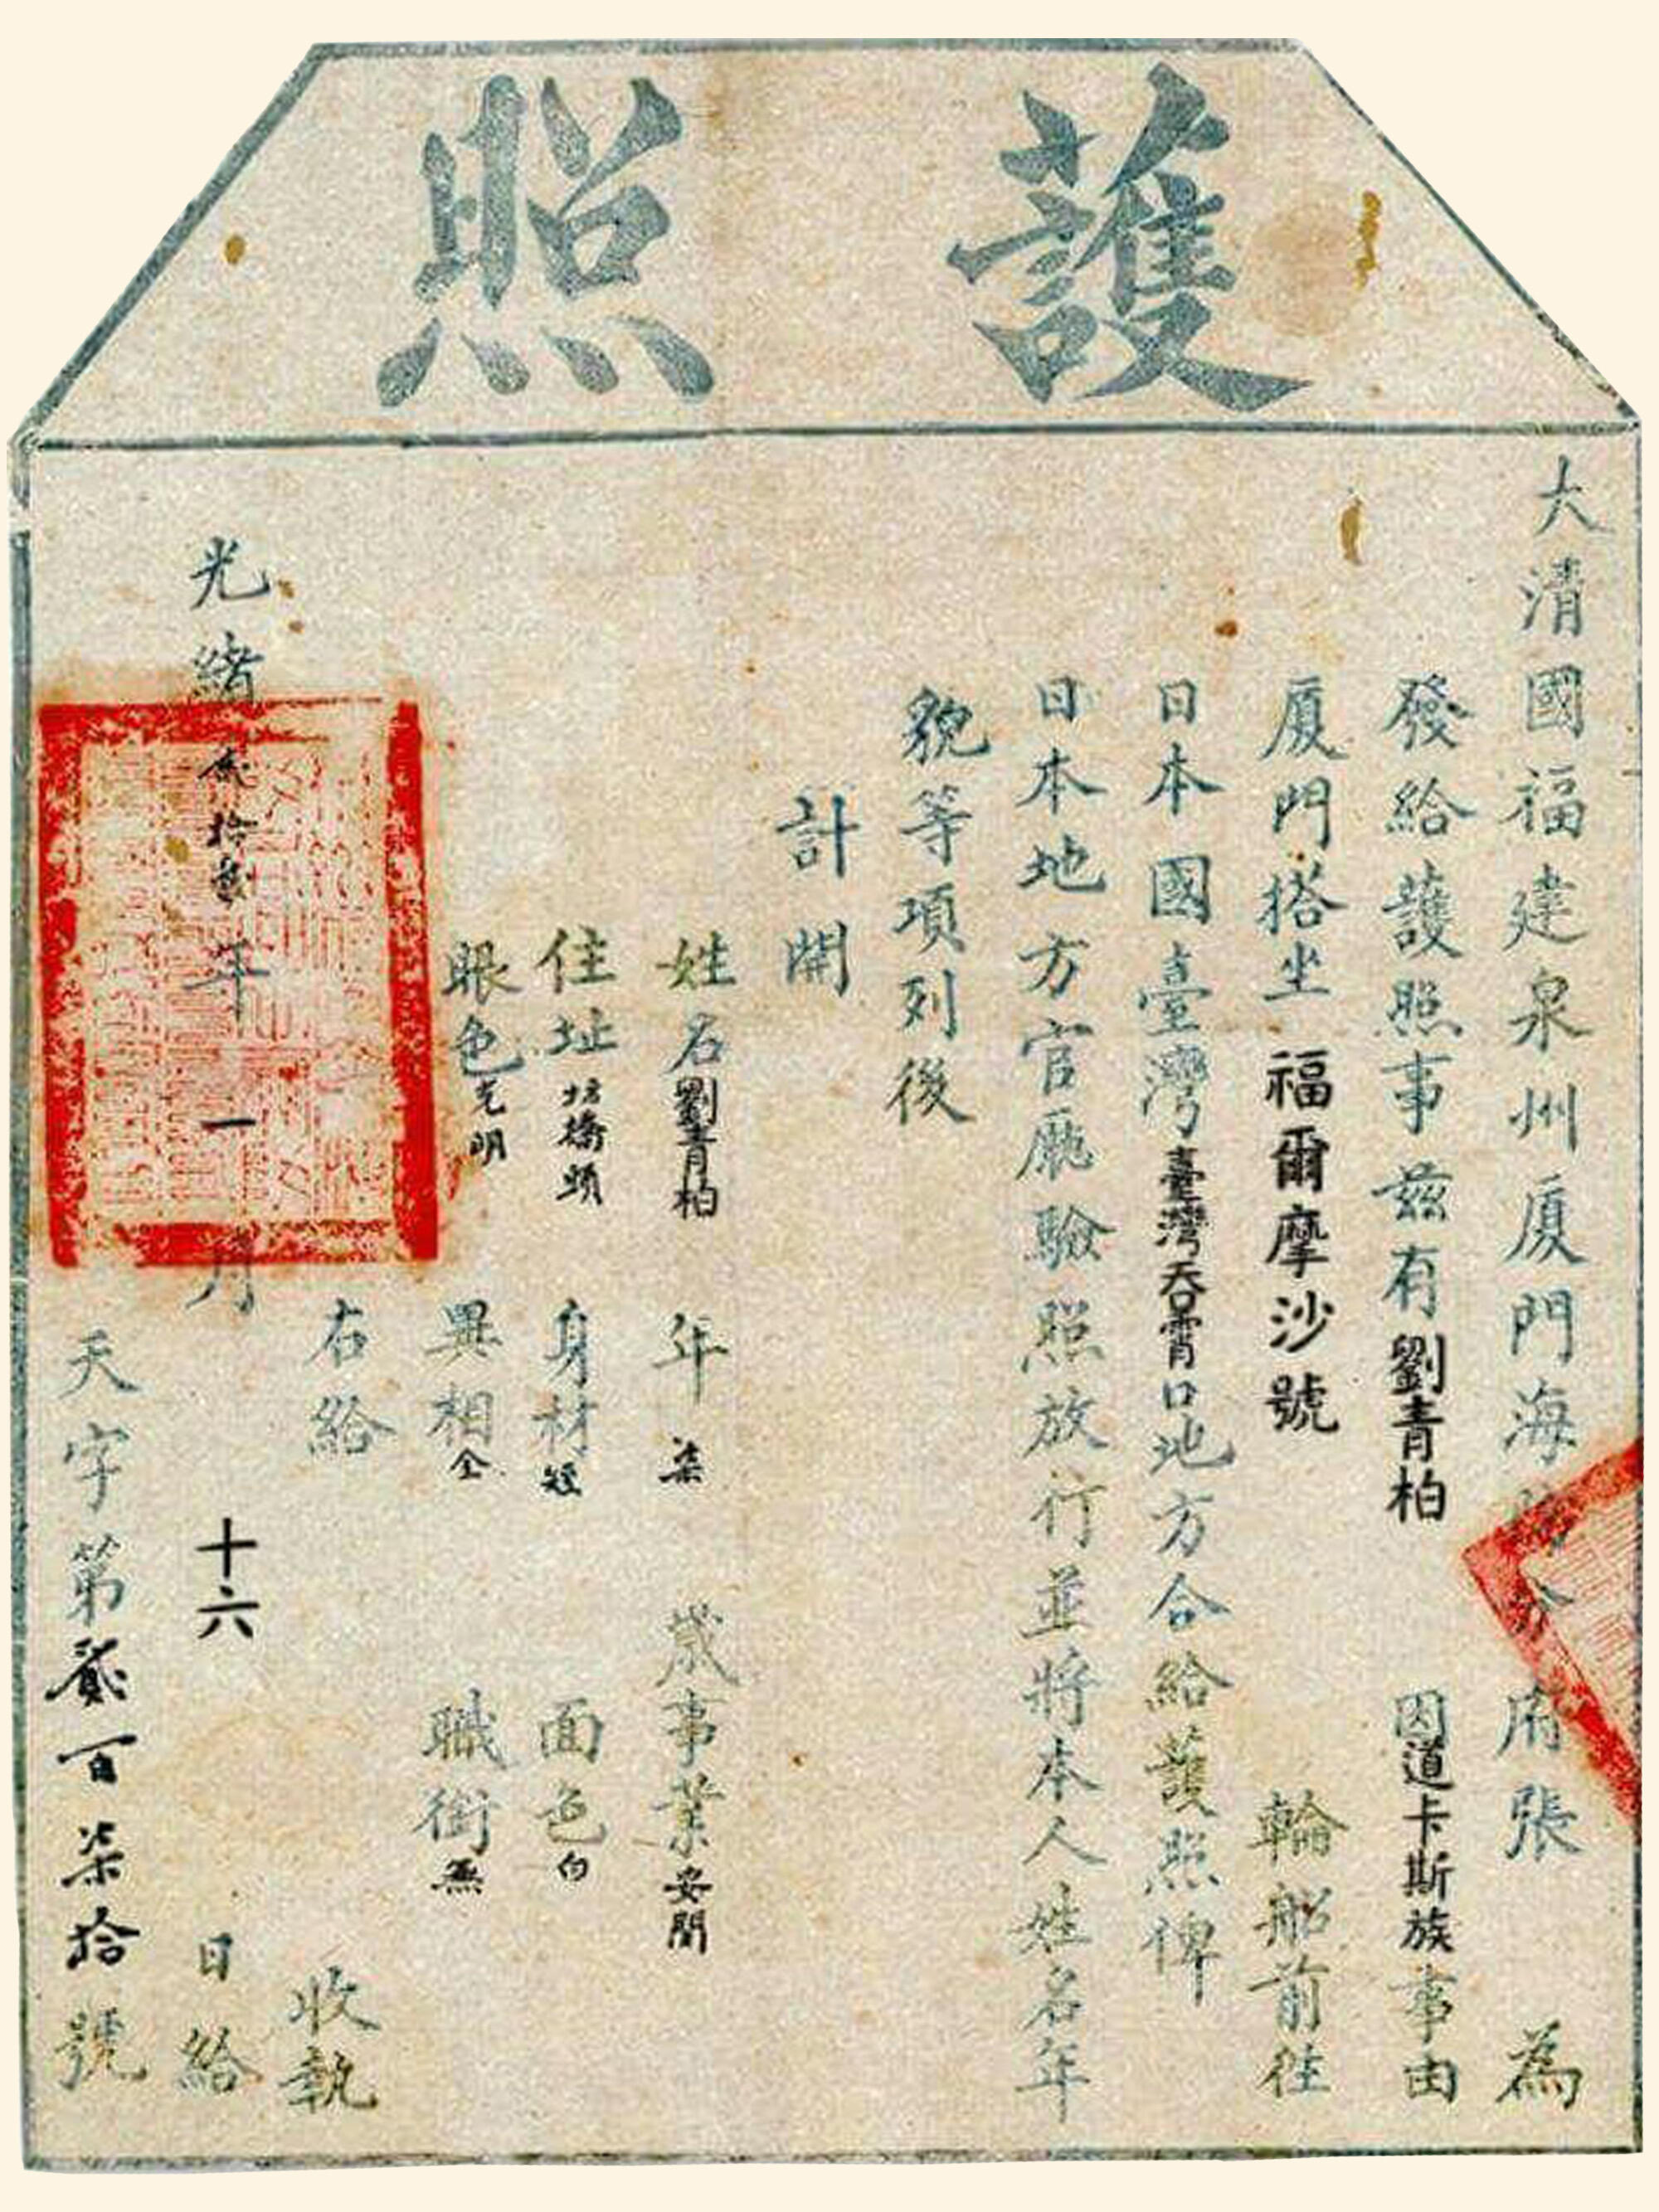 護照
大清國福建泉州厦門海防分府張 為
發給護照事茲有劉青柏 因道卡斯族事由
厦門搭坐福爾摩沙號 輪船前往
日本國臺灣臺灣吞霄口地方合給護照俾
日本地方官廳驗照放行並將本人姓名年
貌等項列後
計開
姓名劉青柏 年 柒 歲事業安閒
住址 坊橋頭 身材短 面色白
眼色光明 異相全 職銜無
右給 收執
光緒貳拾 年 一 月 十六 日給
天字第貳百柒拾號